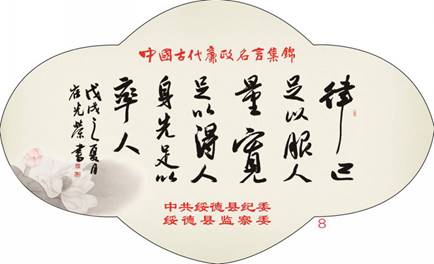 中國古代廉政名言集錦
律己
足以服人
量寬
足以得人
身先足以
率人
戊戌之夏月
崔光榮書
中共绥德县纪委
绥德县监察委
8